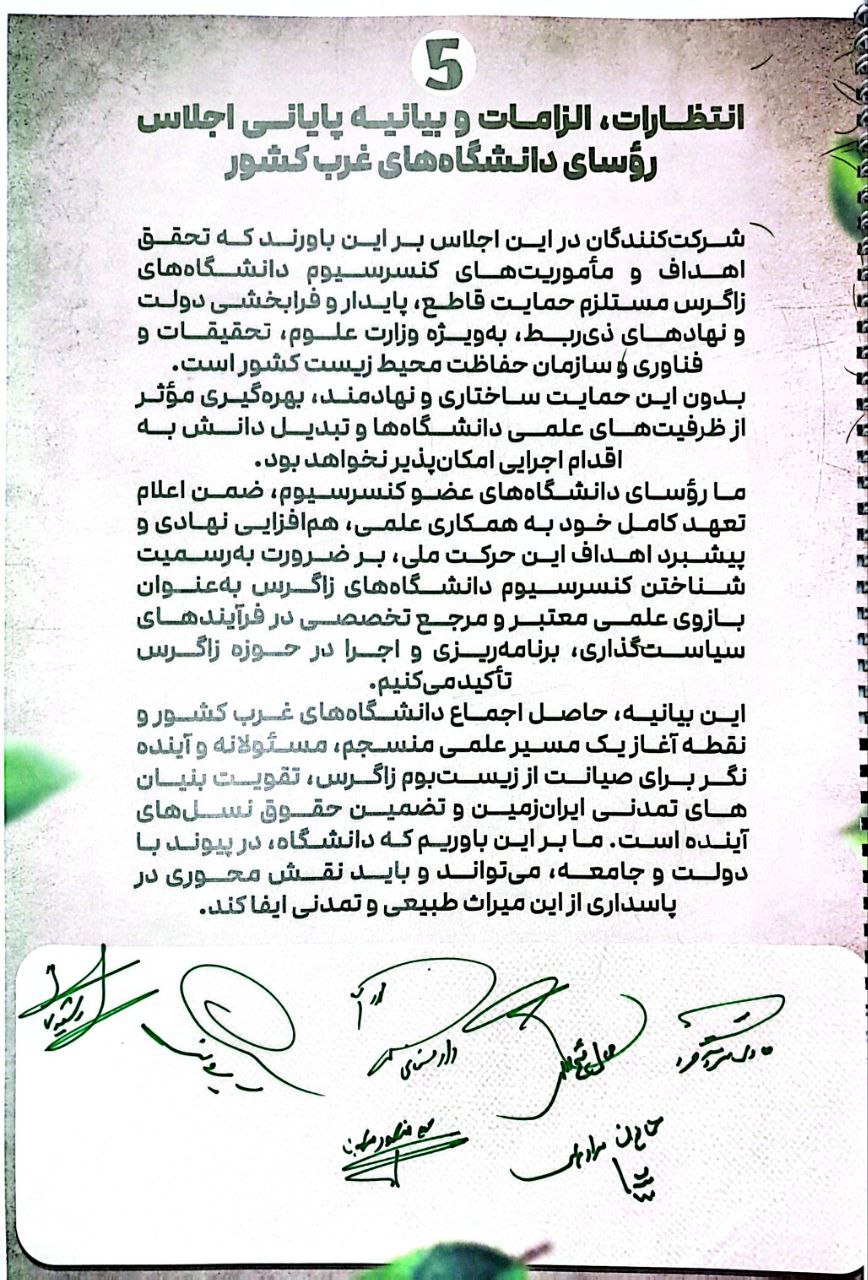 5
انتظارات، الزامات و بیانیه پایانی اجلاس
رؤسای دانشگاه‌های غرب کشور
شرکت‌کنندگان در این اجلاس بر این باورند که تحقق
اهداف و مأموریت‌های کنسرسیوم دانشگاه‌های
زاگرس مستلزم حمایت قاطع، پایدار و فرابخشی دولت
و نهادهای ذی‌ربط، به‌ویژه وزارت علوم، تحقیقات و
فناوری و سازمان حفاظت محیط زیست کشور است.
بدون این حمایت ساختاری و نهادمند، بهره‌گیری مؤثر
از ظرفیت‌های علمی دانشگاه‌ها و تبدیل دانش به
اقدام اجرایی امکان‌پذیر نخواهد بود.
ما رؤسای دانشگاه‌های عضو کنسرسیوم، ضمن اعلام
تعهد کامل خود به همکاری علمی، هم‌افزایی نهادی و
پیشبرد اهداف این حرکت ملی، بر ضرورت به‌رسمیت
شناختن کنسرسیوم دانشگاه‌های زاگرس به‌عنوان
بازوی علمی معتبر و مرجع تخصصی در فرآیندهای
سیاست‌گذاری، برنامه‌ریزی و اجرا در حوزه زاگرس
تأکید می‌کنیم.
این بیانیه، حاصل اجماع دانشگاه‌های غرب کشور و
نقطه آغاز یک مسیر علمی منسجم، مسئولانه و آینده
نگر برای صیانت از زیست‌بوم زاگرس، تقویت بنیان
های تمدنی ایران‌زمین و تضمین حقوق نسل‌های
آینده است. ما بر این باوریم که دانشگاه، در پیوند با
دولت و جامعه، می‌تواند و باید نقش محوری در
پاسداری از این میراث طبیعی و تمدنی ایفا کند.